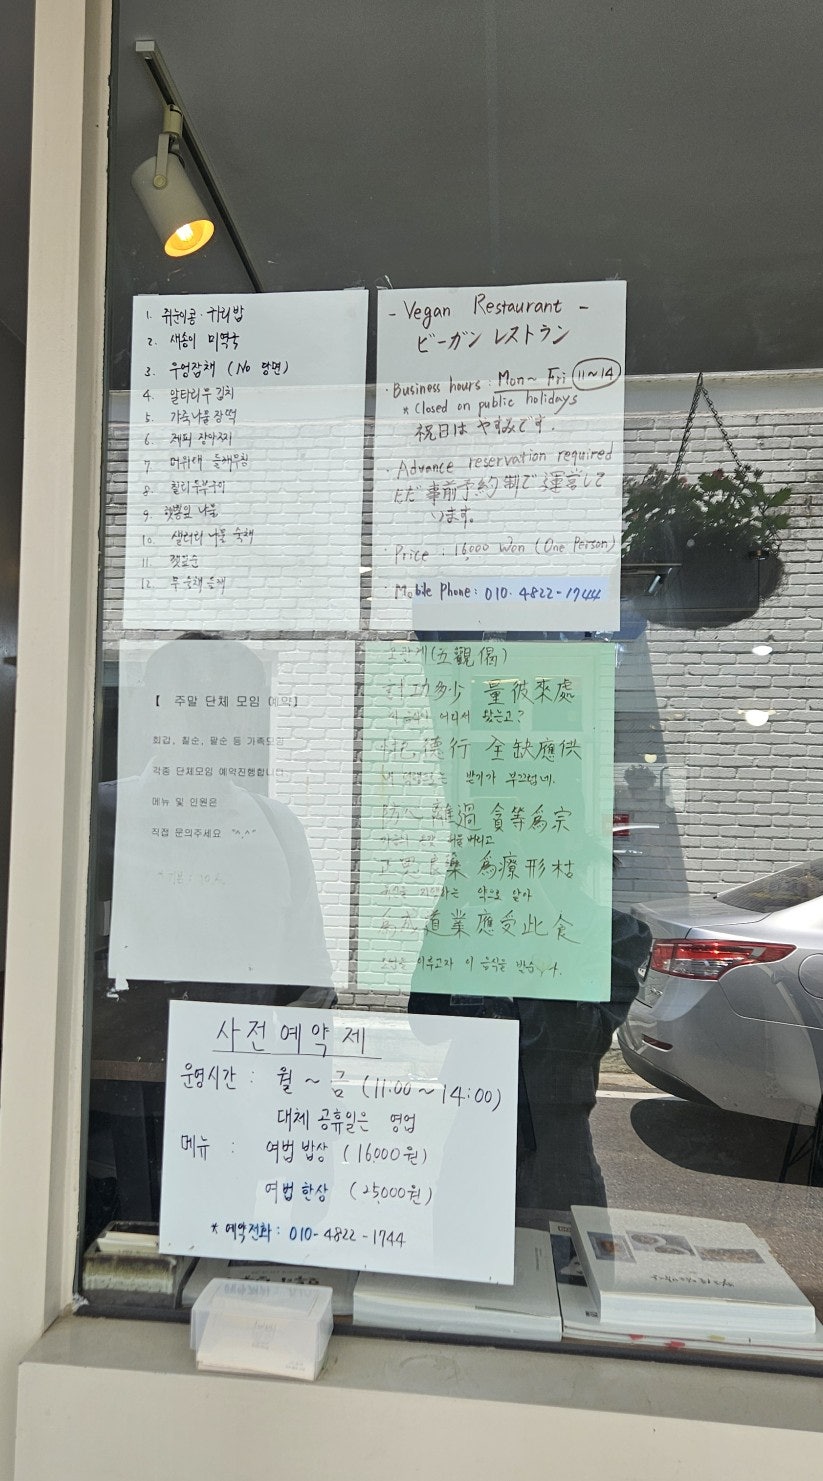 1. 쥐눈이콩·귀리밥
2. 새송이 미역국
3. 우엉잡채 (No 당면)
4. 알타리무 김치
5. 가죽나물 장떡
6. 제피 장아찌
7. 머위대 들깨무침
8. 칠리 두부구이
9. 나물
10. 샐러리 나물 숙채
11.
12. 무 들깨
- Vegan Restaurant -
ビーガン レストラン
· Business hours : Mon ~ Fri 11~14
* Closed on public holidays
祝日は やすみです.
· Advance reservation required
ただ 事前予約制で 運営して
います。
· Price : 16,000 Won (One Person)
· Mobile Phone : 010-4822-1744
【 주말 단체 모임 예약】
회갑, 칠순, 팔순 등 가족모임
각종 단체모임 예약진행합니다
메뉴 및 인원은
직접 문의주세요 ^.^
오관게(五觀偈)
計功多少 量彼來處
이 음식이 어디서 왔는고?
忖己德行 全缺應供
내 덕행으로는 받기가 부끄럽네.
防心離過 貪等為宗
마음의 온갖 버리고
正思良藥 為療形枯
약으로 알아
為成道業 應受此食
도업을 이루고자 이 음식을 받습니다.
사전예약제
운영시간 : 월 ~ 금 (11:00~14:00)
대체 공휴일은 영업
메뉴 : 여법 밥상 (16000원)
여법 한상 (25,000원)
* 예약전화 : 010-4822-1744